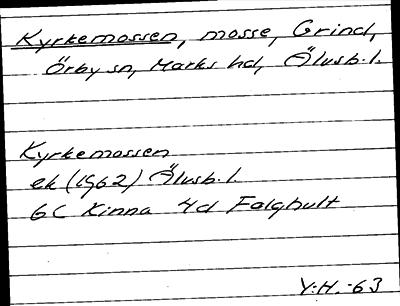 Kyrkemossen, mosse, Grind,
Örby sn, Marks hd, Älvsb. l.
Kyrkemossen
ek (1962) Älvsb. l.
6C Kinna 4d Falghult
Y.H. -63